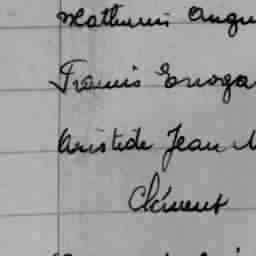 Mathurin Augu
Francis Enoga
Aristide Jean M
Clément